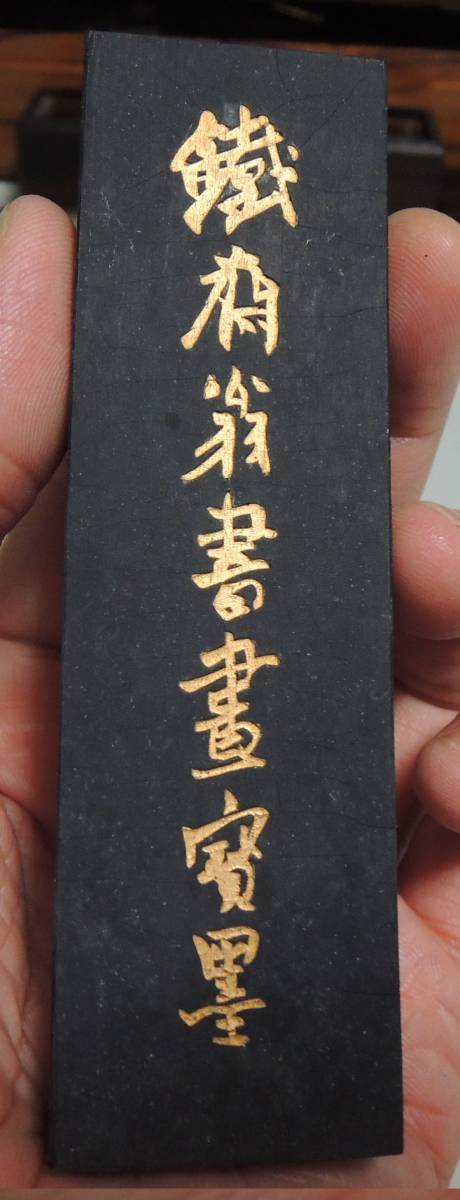 鐵斎翁書畫寶墨